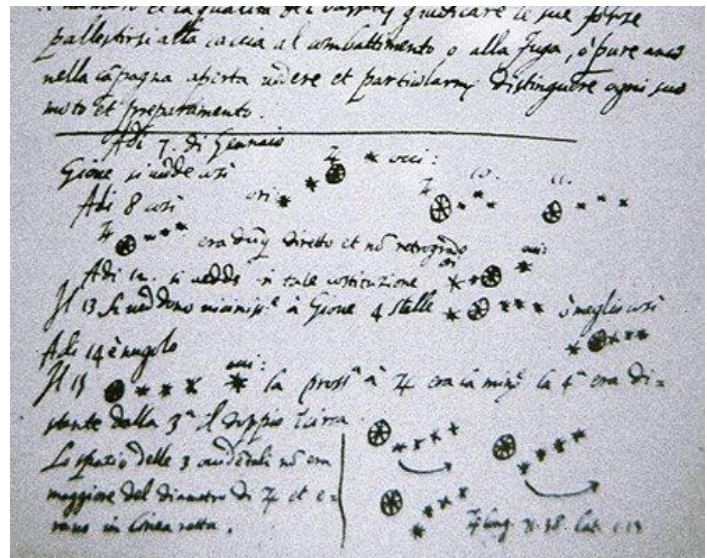 et la qualità de i Vasselli giudicare le sue forze
pallestirsi alla caccia al combattimento o alla fuga, o pure anco
nella capagna aperta vedere et particolarmᵉ distinguere ogni suo
moto et preparamento.
Adi 7. di Gennaio
Gione si vedde così ♃ * occi:
Adi 8 così ori * * ♃ 10. 11.
♃ * * * era dūq̃ diretto et nō retrogrado
Adi 12. si vedde in tale costituzione
Il 13 si veddono vicinissᵉ à Gione 4 stelle * * * * ò meglio così
Adi 14 è nugolo
Il 15 * * * * occi: la prossᵃ à ♃ era la minʳ la 4ᵃ era di=
stante dalla 3ᵃ il doppio Incirca
Lo spatio delle 3 occidētali nō era
maggiore del diametro di ♃ et e=
rano in linea retta.
♃ long. 71.38. Lat. 1.13